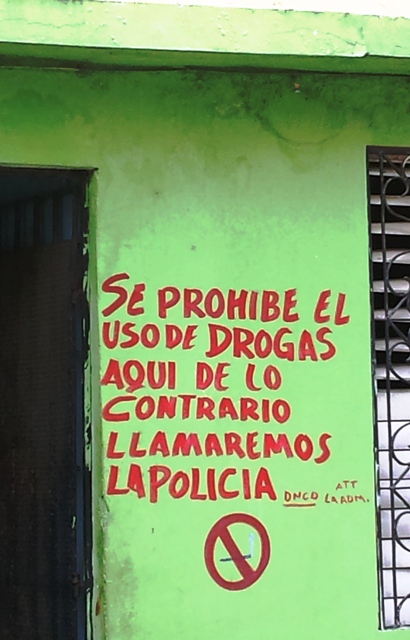 SE PROHIBE EL
USO DE DROGAS
AQUI DE LO
CONTRARIO
LLAMAREMOS
LA POLICIA
DNCD
ATT
LA ADM.